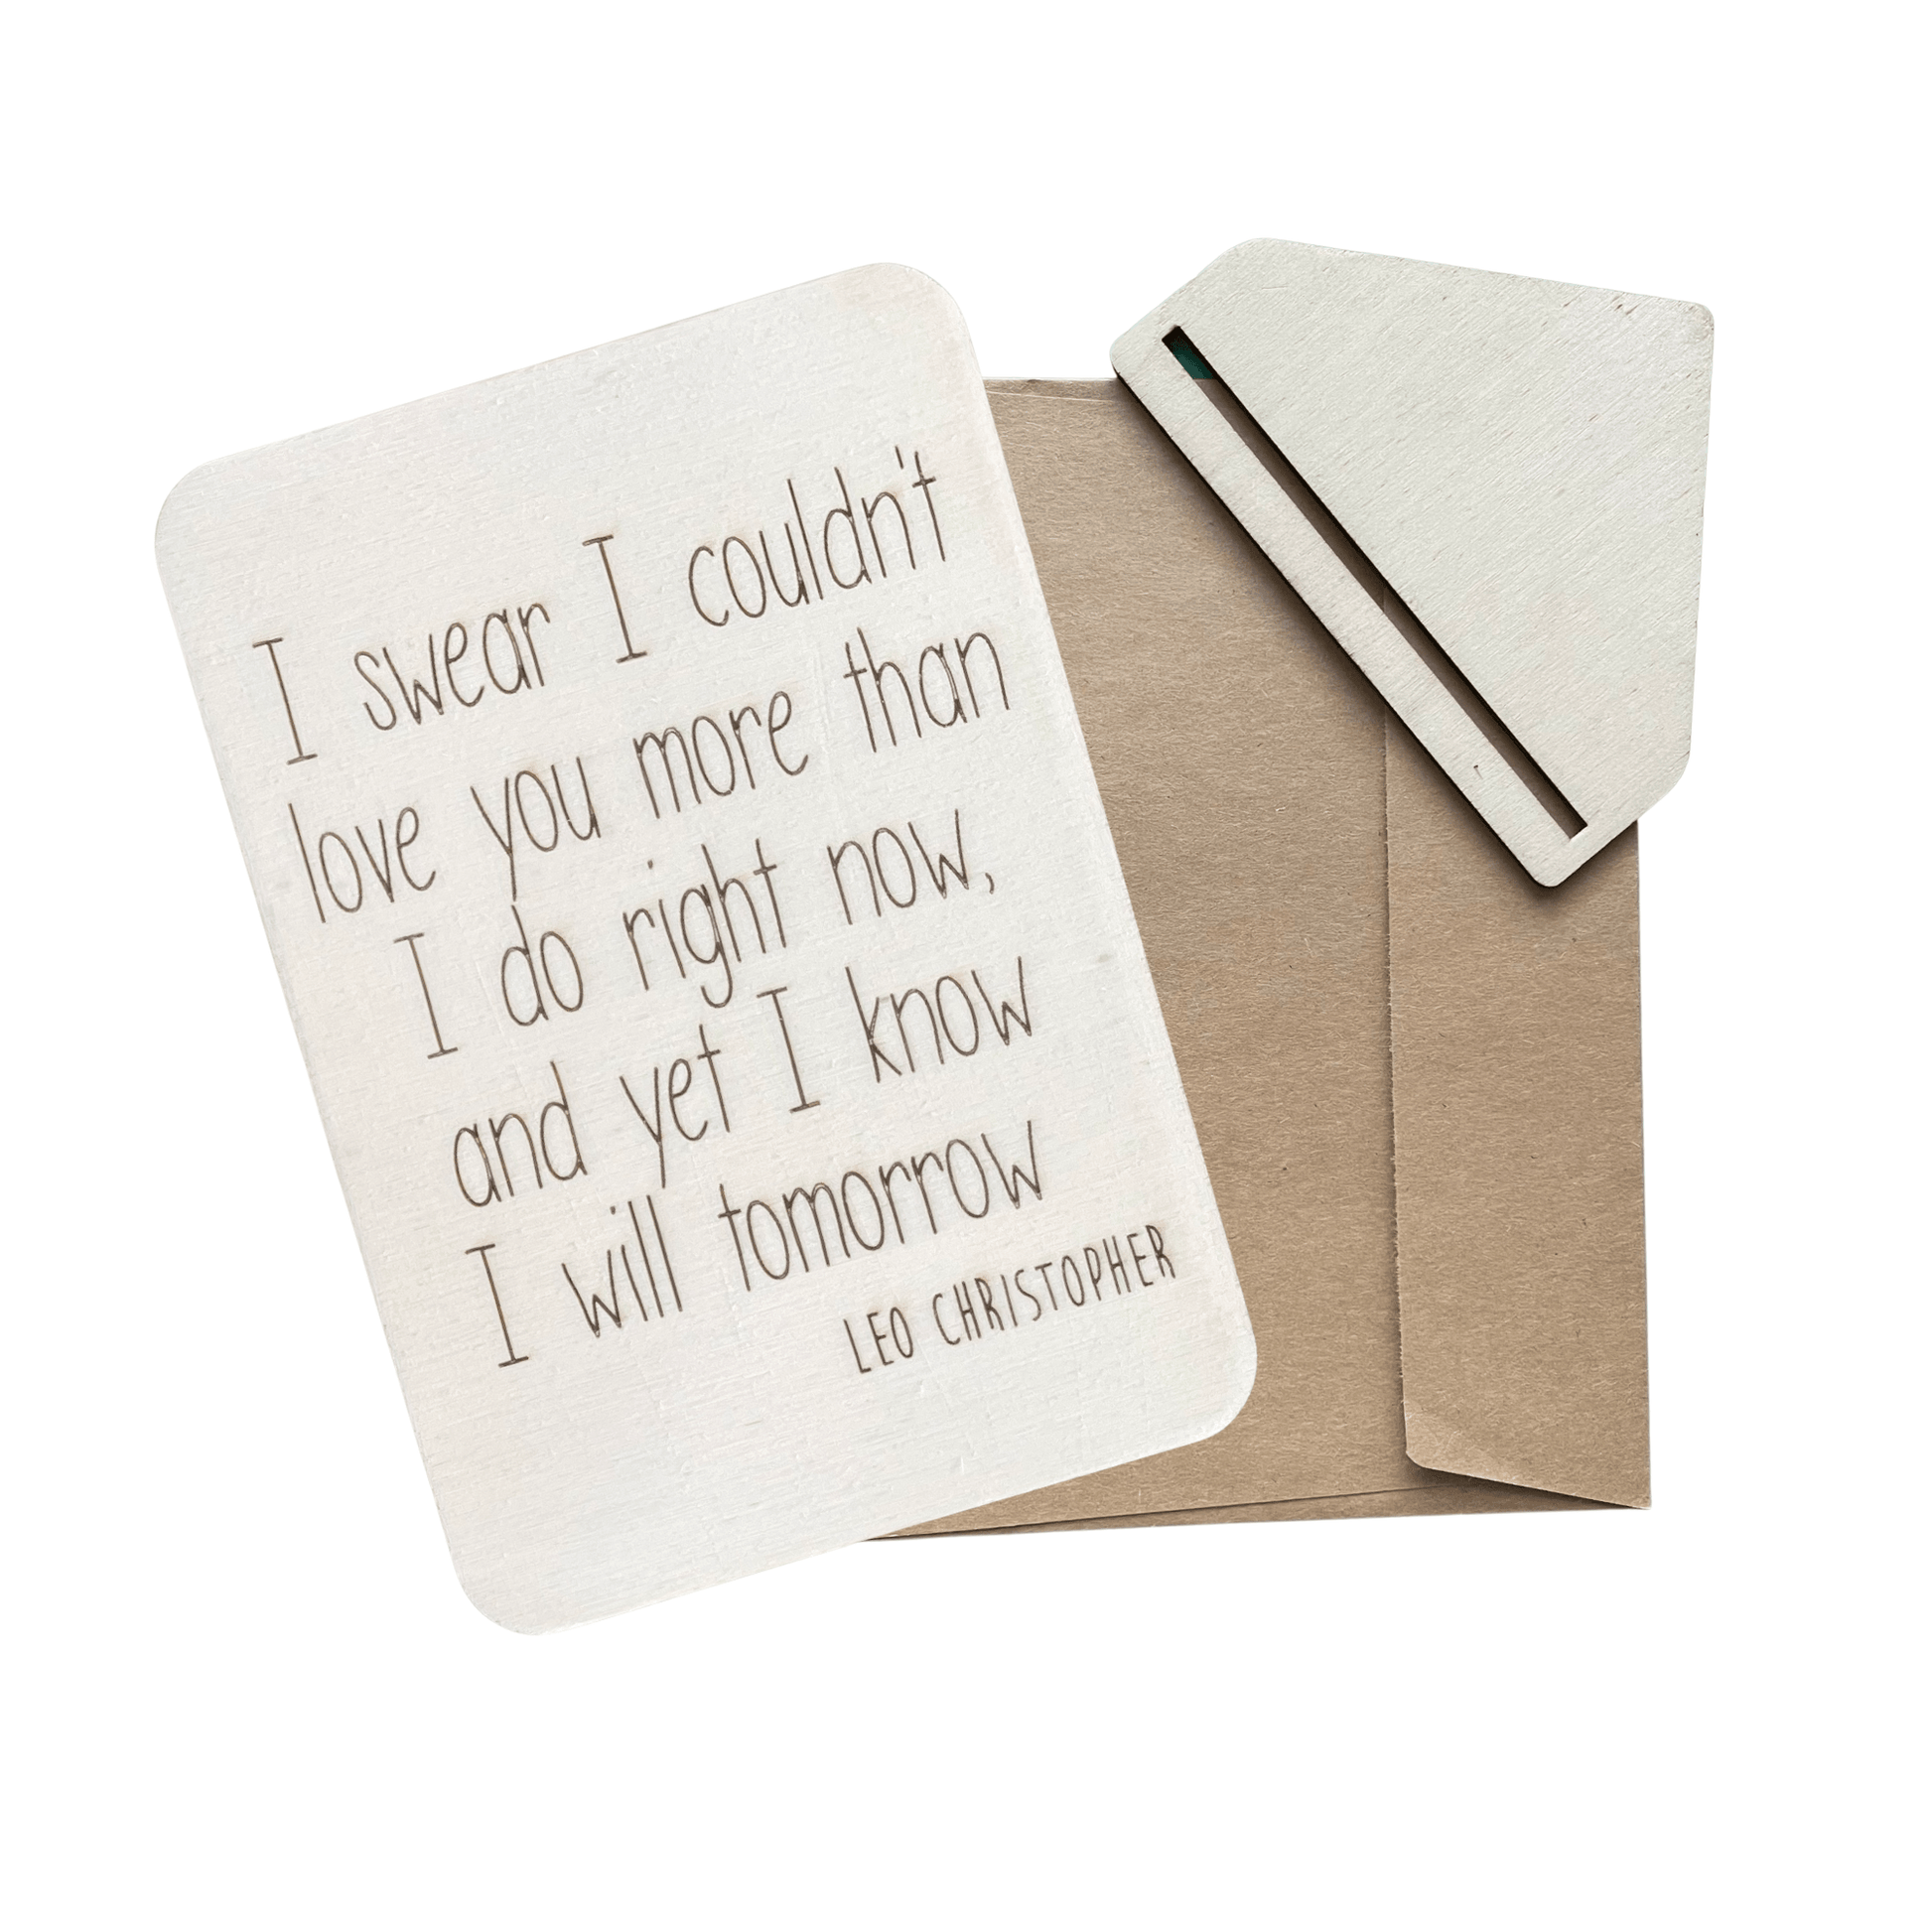 I swear I couldn't
love you more than
I do right now,
and yet I know
I will tomorrow
LEO CHRISTOPHER